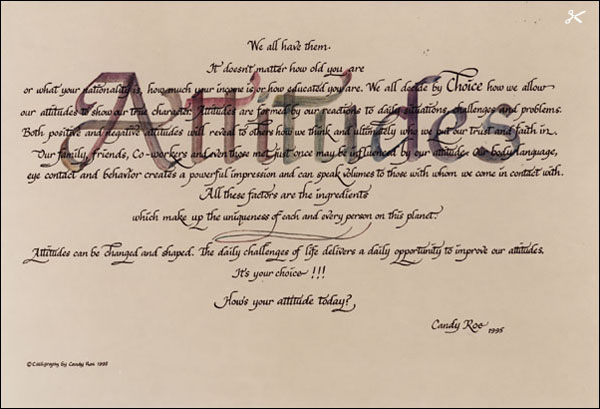 Attitudes
We all have them.
It doesn't matter how old you are
or what your nationality is, how much your income is or how educated you are. We all decide by Choice how we allow
our attitudes to show our true character. Attitudes are formed by our reactions to daily situations, challenges and problems.
Both positive and negative attitudes will reveal to others how we think and ultimately who we put our trust and faith in.
Our family, friends, Co-workers and even those met just once may be influenced by our attitude. Our body language,
eye contact and behavior creates a powerful impression and can speak volumes to those with whom we come in contact with.
All these factors are the ingredients
which make up the uniqueness of each and every person on this planet.
Attitudes can be changed and shaped. The daily challenges of life delivers a daily opportunity to improve our attitudes.
It's your choice !!!
How's your attitude today?
Candy Roe 1995
© Calligraphy by Candy Roe 1995